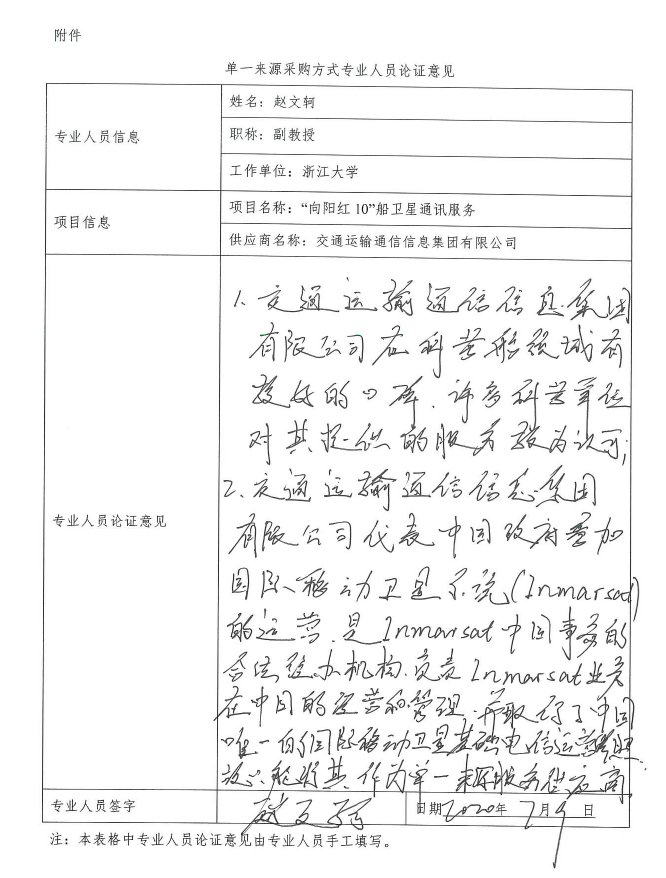 附件
单一来源采购方式专业人员论证意见
专业人员信息
姓名：赵文轲
职称：副教授
工作单位：浙江大学
项目信息
项目名称：“向阳红 10”船卫星通讯服务
供应商名称：交通运输通信信息集团有限公司
专业人员论证意见
1. 交通运输通信信息集团
有限公司在科考船领域有
较好的口碑，许多科考单位
对其提供的服务较为认可；
2. 交通运输通信信息集团
有限公司代表中国政府参加
国际移动卫星系统(Inmarsat)
的运营，是Inmarsat中国事务的
合法经办机构，负责Inmarsat业务
在中国的运营和管理，并取得了中国
唯一的国际移动卫星基础电信运营牌照
故只能将其作为单一来源服务供应商
专业人员签字
赵文轲
日期 2020年 7月 9 日
注：本表格中专业人员论证意见由专业人员手工填写。